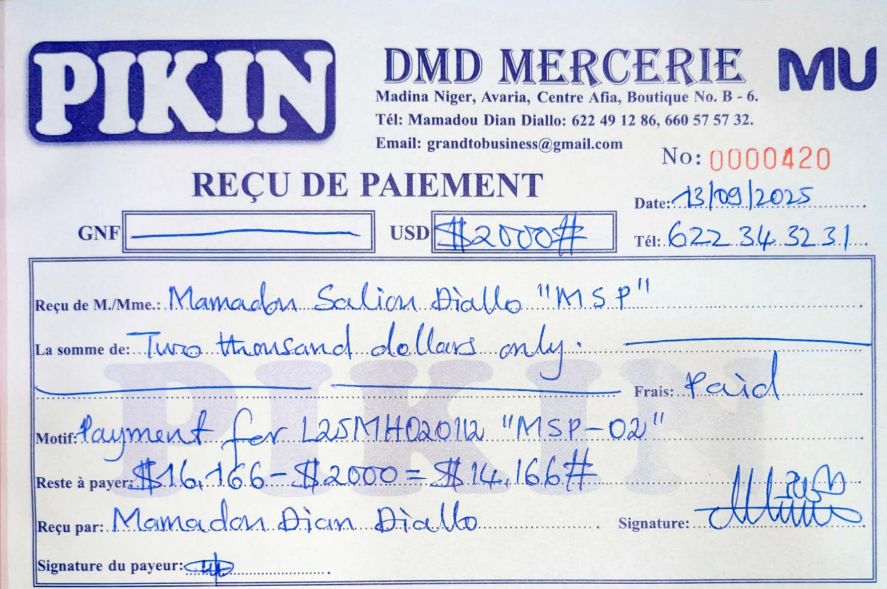 PIKIN
DMD MERCERIE
MU
Madina Niger, Avaria, Centre Afia, Boutique No. B - 6.
Tél: Mamadou Dian Diallo: 622 49 12 86, 660 57 57 32.
Email: grandtobusiness@gmail.com
No: 0000420
REÇU DE PAIEMENT
Date: 13/09/2025
GNF USD $2000#
Tél: 622 34 32 31
Reçu de M./Mme.: Mamadou Saliou Diallo "MSP"
La somme de: Two thousand dollars only.
Frais: Paid
PIKIN
Motif: Payment for L25MH020112 "MSP-02"
Reste à payer: $16,166-$2000=$14,166#
Reçu par: Mamadou Dian Diallo
Signature:
Signature du payeur: